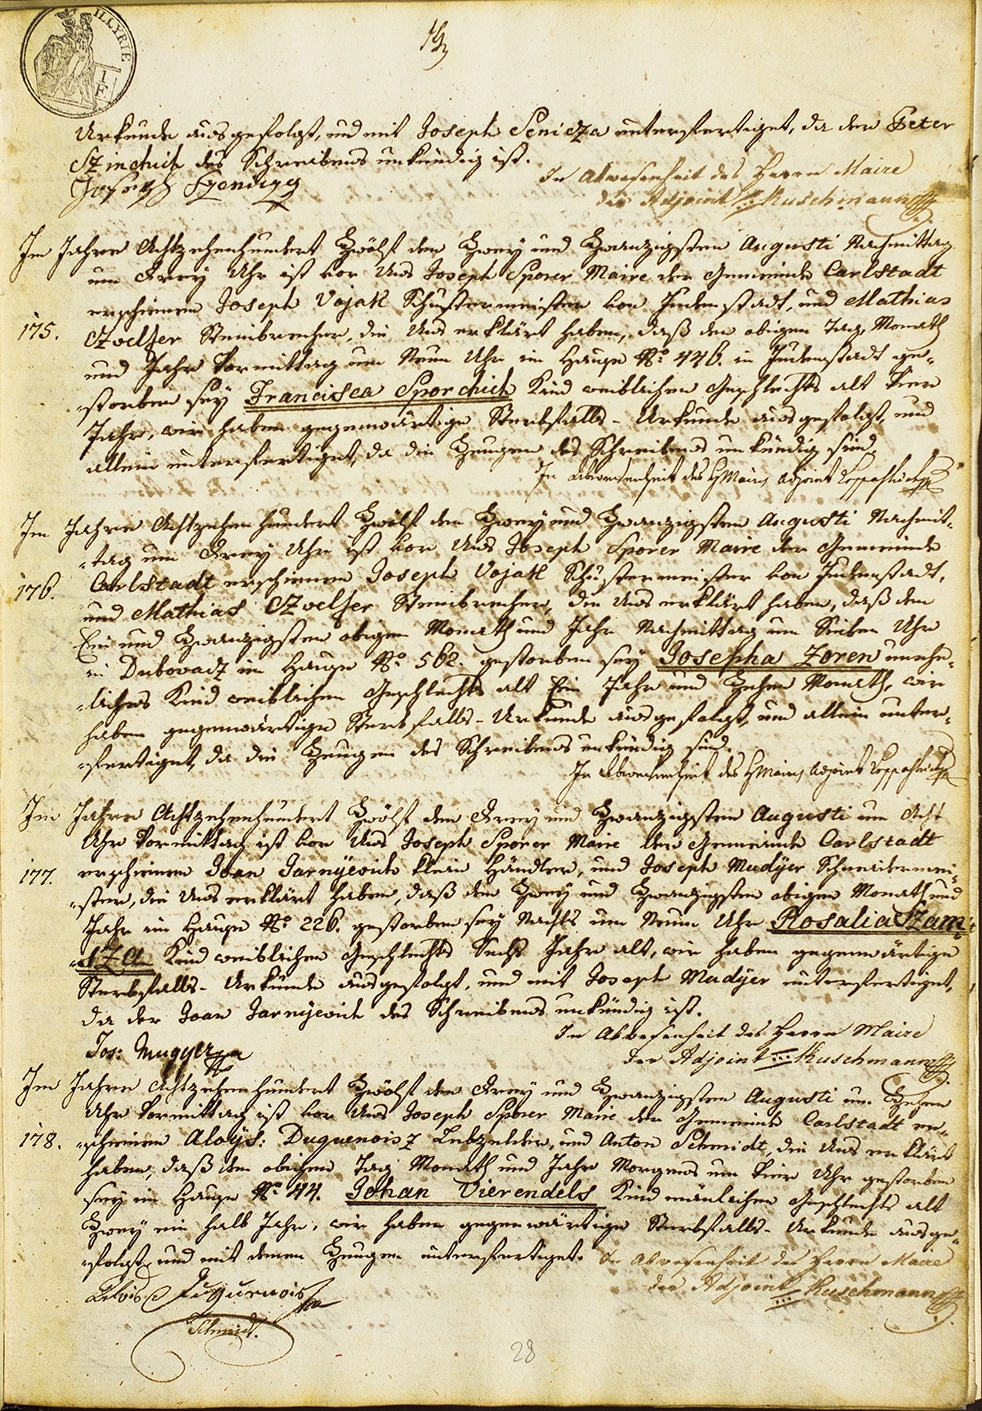 ILLYRIE
1 F
Urkunde ausgefolgt, und mit Joseph Senicza unterfertiget, da der Peter
Szinchich des Schreibens unkündig ist.
In Abwesenheit des Herrn Maire
Joseph
der Adjoint Kuschmann
Im Jahre Achtzehenhundert Zwölf den Zwey und Zwanzigsten Augusti Nachmittag
um Drey Uhr ist vor Uns Joseph Sporer Maire der Gemeinde Carlstadt
erschienen Joseph Vojak Schustermeister von Judenstadt, und Mathias
175. Czvelfer Steinbrecher, die Uns erklärt haben, daß den obigen Tag, Monath
und Jahr Vormittag um Neun Uhr im Hause No. 446. in Judenstadt ge-
-storben sey Francisca Sporchich Kind weiblichen Geschlechts alt Vier
Jahr, wir haben gegenwärtige Sterbfalls-Urkunde ausgefolgt, und
allein unterfertiget, da die Zeugen des Schreibens unkündig sind.
In Abwesenheit des H Maires Adjoint
Im Jahre Achtzehenhundert Zwölf den Zwey und Zwanzigsten Augusti Nachmit-
-tag um Drey Uhr ist vor Uns Joseph Sporer Maire der Gemeinde
176. Carlstadt erschienen Joseph Vojak Schustermeister von Judenstadt,
und Mathias Czvelfer Steinbrecher, die Uns erklärt haben, daß den
Ein und Zwanzigsten obigen Monath und Jahr Nachmittag um Sieben Uhr
in Dubovacz im Hause No. 562. gestorben sey Josepha Zoren unehe-
-liches Kind weiblichen Geschlechts alt Ein Jahr und Zehen Monath, wir
haben gegenwärtige Sterbfalls-Urkunde ausgefolgt, und allein unter-
-fertiget, da die Zeugen des Schreibens unkündig sind.
In Abwesenheit des H Maires Adjoint
Im Jahre Achtzehenhundert Zwölf den Drey und Zwanzigsten Augusti um Acht
Uhr Vormittag ist vor Uns Joseph Sporer Maire der Gemeinde Carlstadt
177. erschienen Joan Jarnyevich klein Händler, und Joseph Mudyer Schneidermei-
-ster, die Uns erklärt haben, daß den Zwey und Zwanzigsten obigen Monath und
Jahr im Hause No. 226. gestorben sey Nachts um Neun Uhr Rosalia Szam-
-sza Kind weiblichen Geschlechts Sechs Jahr alt, wir haben gegenwärtige
Sterbfalls-Urkunde ausgefolgt, und mit Joseph Mudyer unterfertiget,
da der Joan Jarnyevich des Schreibens unkündig ist.
In Abwesenheit des Herrn Maire
Jos: Mugyer
der Adjoint Kuschmann
Im Jahre Achtzehenhundert Zwölf den Drey und Zwanzigsten Augusti um Zehen
Uhr Vormittag ist vor Uns Joseph Sporer Maire der Gemeinde Carlstadt er-
178. -schienen Aloys: Duquenoisz Lebzelter, und Anton Schmidt, die Uns erklärt
haben, daß den obigen Tag Monath und Jahr Morgens um Vier Uhr gestorben
sey im Hause No. 44. Johan Vierendels Kind mänlichen Geschlechts alt
Zwey ein halb Jahr, wir haben gegenwärtige Sterbfalls-Urkunde ausge-
-folgt, und mit denen Zeugen unterfertiget. In Abwesenheit des Herrn Maire
der Adjoint Kuschmann
Schmidt.
28